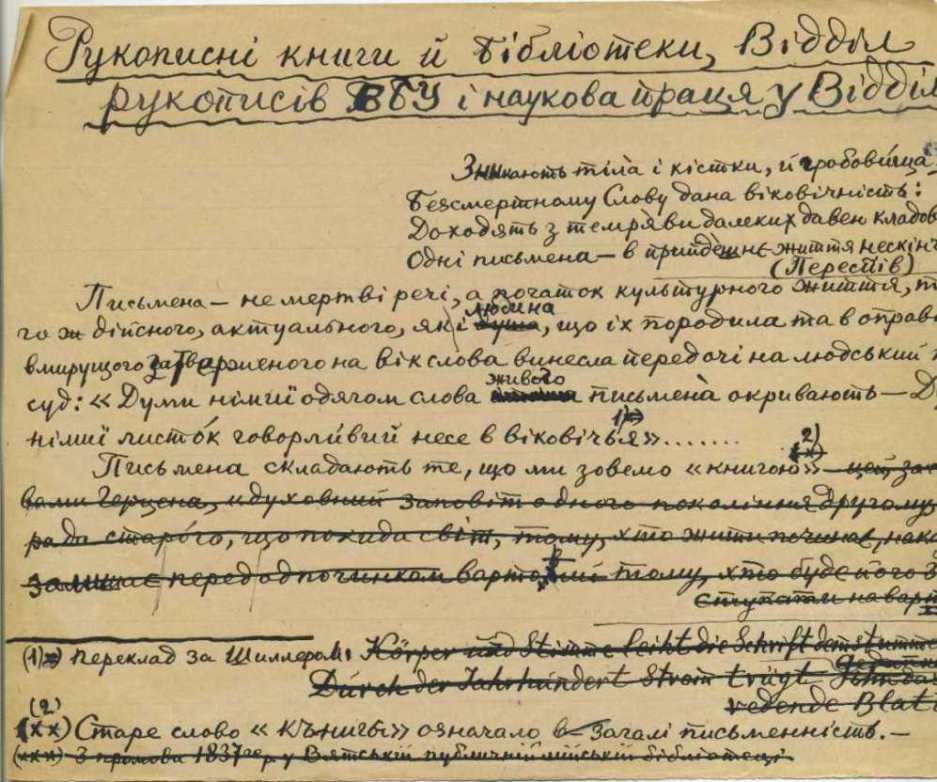 Рукописні книги й бібліотеки, Відділ
рукописів ВБУ і наукова праця у Відділ
Зникають тіла і кістки, й гробовища
Безсмертному Слову дана віковічність:
Доходять з темряви далеких давен кладов
Одні письмена — в прийдешнє життя нескінч
(Переспів)
Письмена — не мертві речі, а початок культурного життя, т
людина
го ж дійсного, актуального, як і душа, що їх породила та в оправі
вмирущого затверженого на вік слова винесла передочі на людський
живого
суд: «Думи німій одягом слова письмена окривають — Д
1)
німий листок говорливий несе в віковіччя».......
2)
Письмена складають те, що ми зовемо «книгою» — цей за
вами Герцена, "духовний заповіт одного покоління другому,
рада старого, що покида світ, тому, хто жити почина, нака
залишає перед одпочинком вартовий тому, хто буде його з
ступати на варт
(1) переклад за Шиллером: Körper und Stimme leiht die Schrift dem stumme
Gedanke
Durch der Jahrhundert Strom trägt
redende Blat
(2)
(××) Старе слово «кънигы» означало в-загалі письменність. —
(×××) З промови 1837 р. у Вятській публичній бібліотеці.